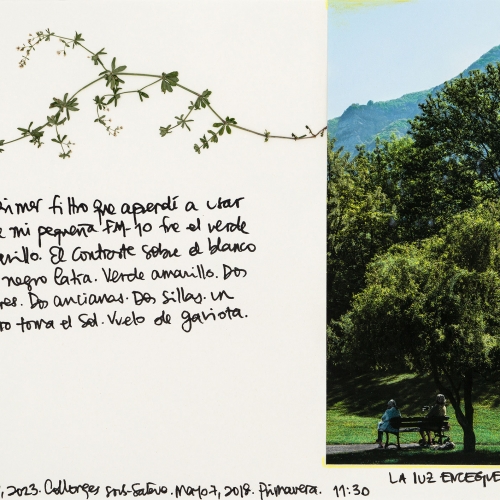 imer filtro que aprendí a usar
mi pequeña FM-10 fue el verde
arillo. El contraste sobre el blanco
negro latía. Verde amarillo. Dos
res. Dos ancianas. Dos sillas. un
ro toma el sol. Vuelo de gaviota.
, 2023. Collonges sous-Salève. Mayo 7, 2018. Primavera. 11:30
LA LUZ